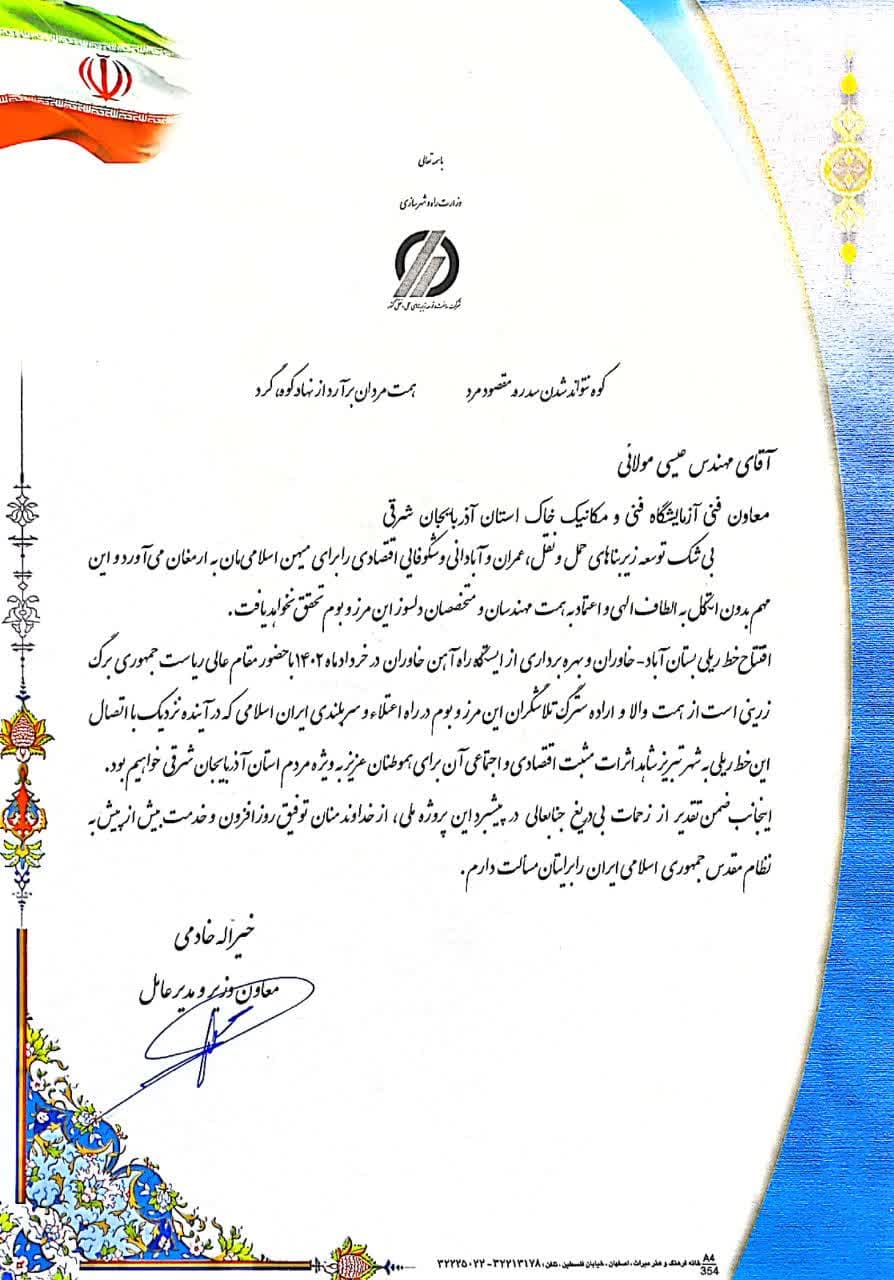 باسمه تعالی
وزارت راه و شهرسازی
شرکت ساخت و توسعه زیربناهای حمل و نقل کشور
کوه نتواند شدن سد ره مقصود مرد همت مردان برآرد از نهاد کوه، گرد
آقای مهندس عیسی مولائی
معاون فنی آزمایشگاه فنی و مکانیک خاک استان آذربایجان شرقی
بی شک توسعه زیربناهای حمل و نقل، عمران و آبادانی و شکوفایی اقتصادی را برای میهن اسلامی‌مان به ارمغان می‌آورد و این
مهم بدون اتکال به الطاف الهی و اعتماد به همت مهندسان و متخصصان دلسوز این مرز و بوم تحقق نخواهد یافت.
افتتاح خط ریلی بستان آباد- خاوران و بهره برداری از ایستگاه راه آهن خاوران در خرداد ماه ۱۴۰۲ با حضور مقام عالی ریاست جمهوری برگ
زرینی است از همت والا و اراده سترگ تلاشگران این مرز و بوم در راه اعتلاء و سربلندی ایران اسلامی که در آینده نزدیک با اتصال
این خط ریلی به شهر تبریز شاهد اثرات مثبت اقتصادی و اجتماعی آن برای هموطنان عزیز به ویژه مردم استان آذربایجان شرقی خواهیم بود.
اینجانب ضمن تقدیر از زحمات بی‌دریغ جنابعالی در پیشبرد این پروژه ملی، از خداوند منان توفیق روزافزون و خدمت بیش از پیش به
نظام مقدس جمهوری اسلامی ایران را برایتان مسألت دارم.
خیراله خادمی
معاون وزیر و مدیرعامل
خانه فرهنگ و هنر میراث، اصفهان، خیابان فلسطین، تلفن: ۳۲۲۱۳۱۷۸ - ۳۲۲۲۵۰۲۲
A4
354